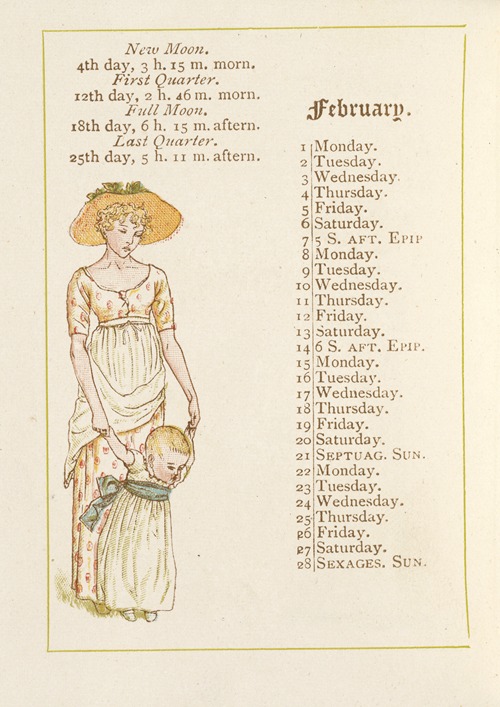 New Moon.
4th day, 3 h. 15 m. morn.
First Quarter.
12th day, 2 h. 46 m. morn.
Full Moon.
18th day, 6 h. 15 m. aftern.
Last Quarter.
25th day, 5 h. 11 m. aftern.
February.
1 Monday.
2 Tuesday.
3 Wednesday.
4 Thursday.
5 Friday.
6 Saturday.
7 5 S. AFT. EPIP
8 Monday.
9 Tuesday.
10 Wednesday.
11 Thursday.
12 Friday.
13 Saturday.
14 6 S. AFT. EPIP.
15 Monday.
16 Tuesday.
17 Wednesday.
18 Thursday.
19 Friday.
20 Saturday.
21 SEPTUAG. SUN.
22 Monday.
23 Tuesday.
24 Wednesday.
25 Thursday.
26 Friday.
27 Saturday.
28 SEXAGES. SUN.